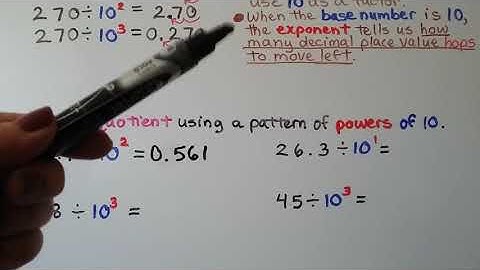 270÷10² = 2.70
270÷10³ = 0.27
use 10 as a factor.
•When the base number is 10,
the exponent tells us how
many decimal place value hops
to move left.
quotient using a pattern of powers of 10.
10² = 0.561
26.3 ÷ 10¹ =
8 ÷ 10³ =
45 ÷ 10³ =